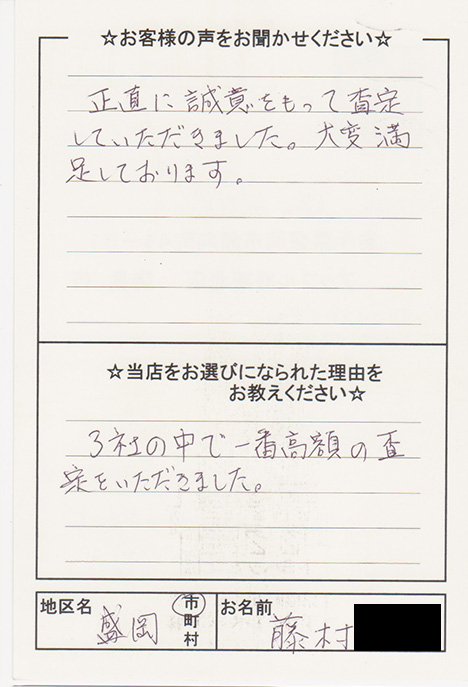 ☆お客様の声をお聞かせください☆
正直に誠意をもって査定
していただきました。大変満
足しております。
☆当店をお選びになられた理由を
お教えください☆
3社の中で一番高額の査
定をいただきました。
地区名 盛岡 市町村 お名前 藤村